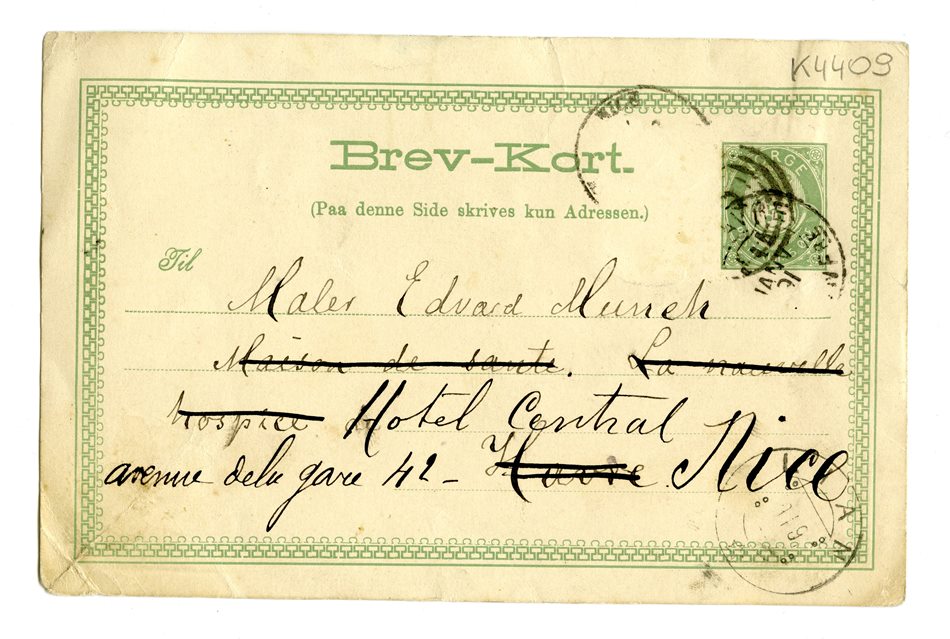 K4409
Brev-Kort.
(Paa denne Side skrives kun Adressen.)
Til
Maler Edvard Munch
Maison de sante. La nouvelle
hospice Hotel Central
avenue dela gare 42 - Havre Nice